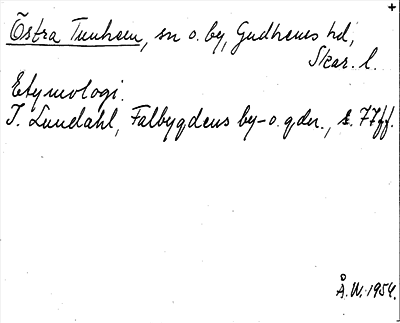 Östra Tunhem, sn o. by, Gudhems hd,
Skar. l.
Etymologi.
I. Lundahl, Falbygdens by- o. gdn., s. 77ff.
Å. W. 1954.